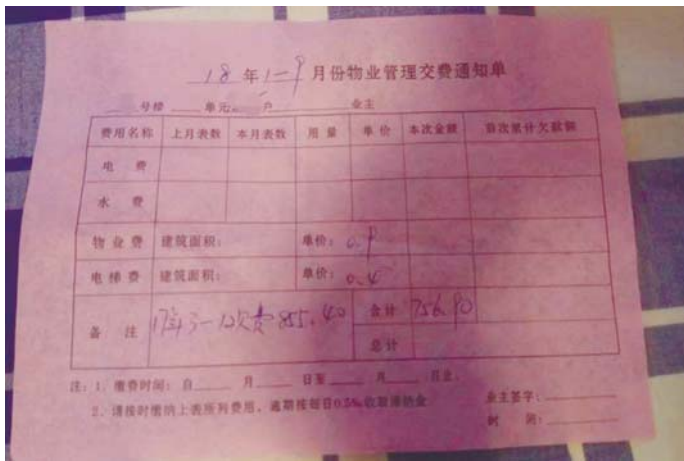 18 年 1-9 月份物业管理交费通知单
号楼 单元 户 业主
费用名称 上月表数 本月表数 用量 单价 本次金额 首次累计欠款额
电费
水费
物业费 建筑面积: 单价: 0.9
电梯费 建筑面积: 单价: 0.4
备注 17年3-12欠费855.40 合计 756.90
总计
注: 1. 缴费时间: 自 月 日至 月 日止.
2. 请按时缴纳上表所列费用, 逾期按每日0.5‰收取滞纳金
业主签字:
时 间: